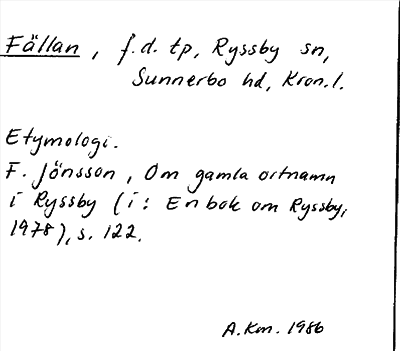 Fällan, f.d. tp, Ryssby sn,
Sunnerbo hd, Kron.l.
Etymologi.
F. Jönsson, Om gamla ortnamn
i Ryssby (i: En bok om Ryssby,
1978), s. 122.
A.Km. 1986